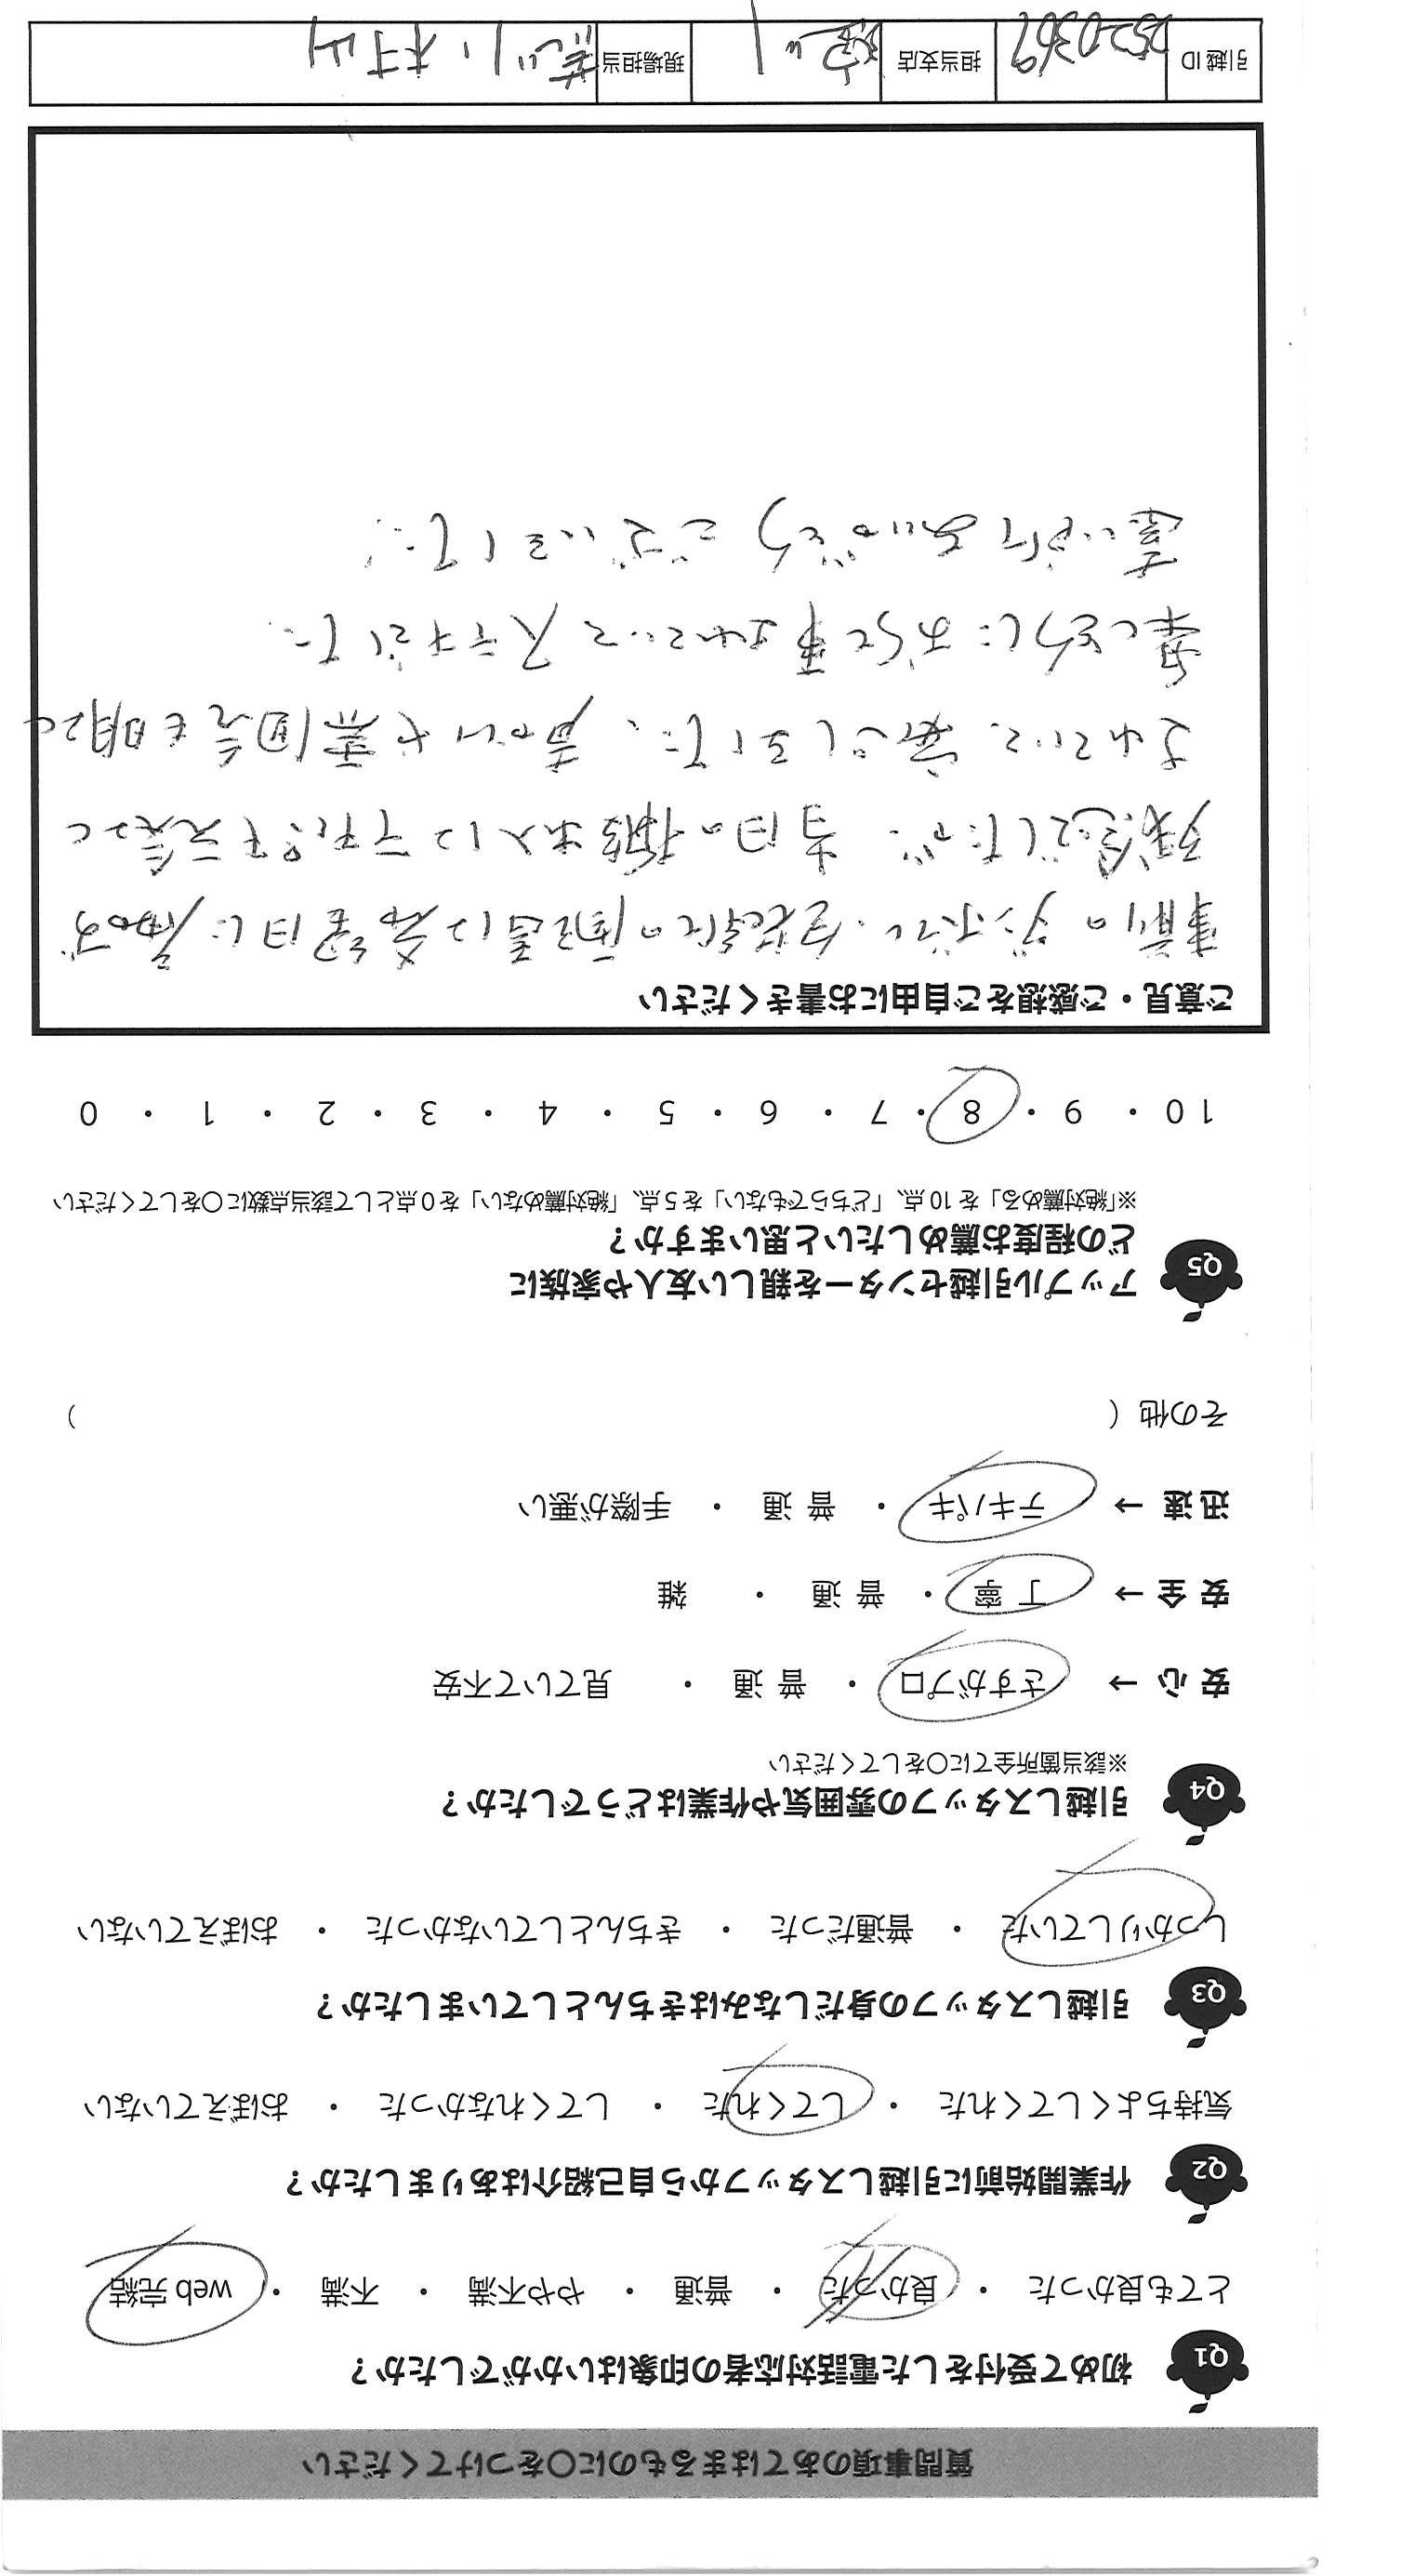 質問事項のあてはまるものに○をつけてください
Q1 初めて受付をした電話対応者の印象はいかがでしたか？
とても良かった ・ 良かった ・ 普通 ・ やや不満 ・ 不満 ・ web 完結
Q2 作業開始前に引越しスタッフから自己紹介はありましたか？
気持ちよくしてくれた ・ してくれた ・ してくれなかった ・ おぼえていない
Q3 引越しスタッフの身だしなみはきちんとしていましたか？
しっかりしていた ・ 普通だった ・ きちんとしていなかった ・ おぼえていない
Q4 引越しスタッフの雰囲気や作業はどうでしたか？
※該当箇所全てに○をしてください
安心 → さすがプロ ・ 普通 ・ 見ていて不安
安全 → 丁寧 ・ 普通 ・ 雑
迅速 → テキパキ ・ 普通 ・ 手際が悪い
その他（ ）
Q5 アップル引越センターを親しい友人や家族に
どの程度お薦めしたいと思いますか？
※「絶対薦める」を 10 点、「どちらでもない」を 5 点、「絶対薦めない」を 0 点として該当点数に○をしてください
10 ・ 9 ・ 8 ・ 7 ・ 6 ・ 5 ・ 4 ・ 3 ・ 2 ・ 1 ・ 0
ご意見・ご感想をご自由にお書きください
事前のダンボール の配達は希望日に
残念でしたが、当日の搬出入はとても元気で
よれていて、安心しました。 や雰囲気も明るく
楽しそうにお仕事されていてステキでした
ありがとうございました！
引越 ID 2520369 担当支店 現場担当 荒川・村山